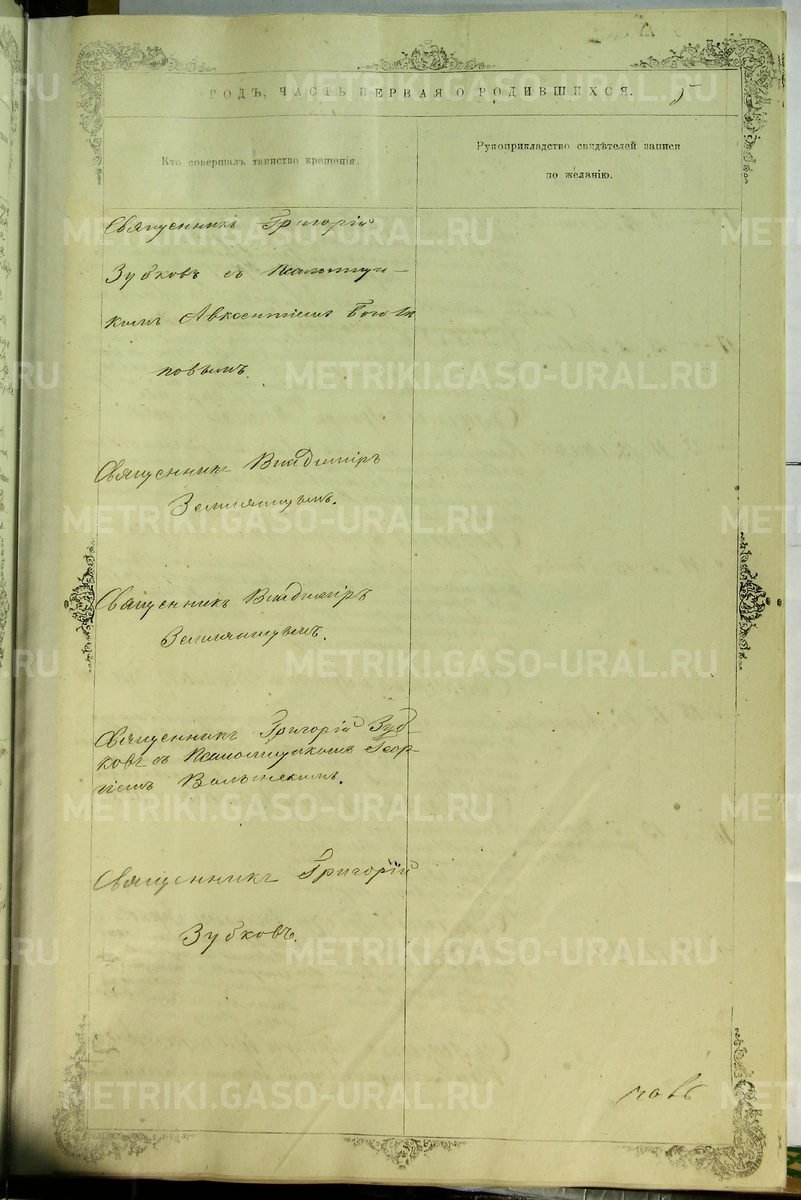 ГОДЪ, ЧАСТЬ ПЕРВАЯ О РОДИВШИХСЯ.
5
Кто совершалъ таинство крещенія.
Рукоприкладство свидѣтелей записи
по желанію.
Священникъ Григорій
Зубковъ съ Псаломщи-
комъ Авксентіемъ Бого
повымъ.
Священникъ Владиміръ
Земляницынъ.
Священникъ Владиміръ
Земляницынъ.
Священникъ Григорій Зуб-
ковъ съ Псаломщикомъ Геор-
гіемъ Волынскимъ.
Священникъ Григорій
Зубковъ.
METRIKI.GASO-URAL.RU